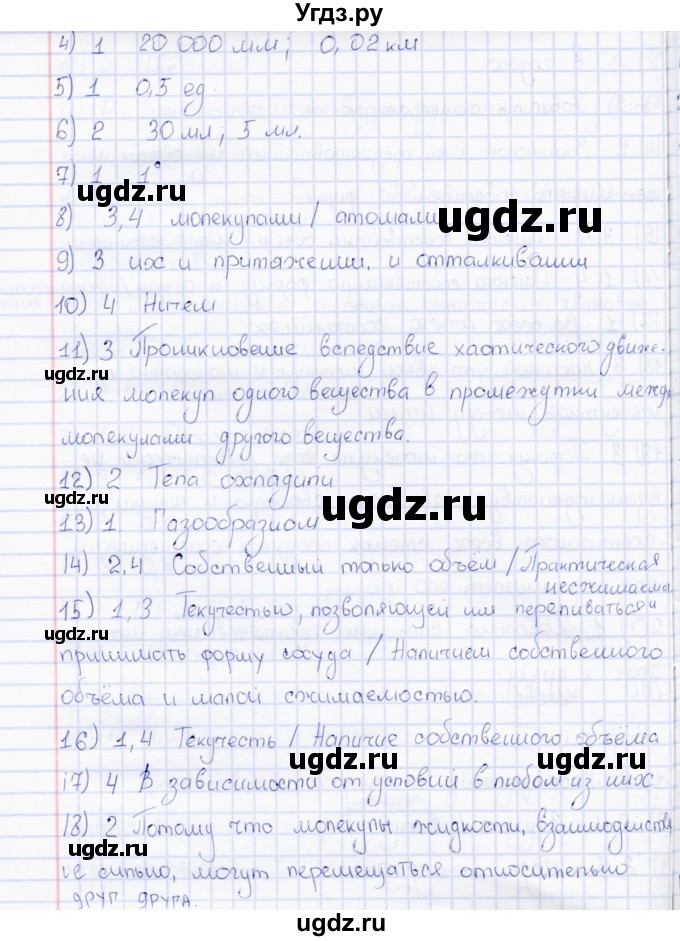 Угдз.ру
4) 1 20 000 мм; 0,02 км
5) 1 0,5 ед.
6) 2 30 мл; 5 мл.
7) 1 1°
ugdz.ru
ugdz.ru
8) 3,4 молекулами / атомами
ugdz.ru
9) 3 их и притяжении, и отталкивании
10) 4 Ничем
11) 3 Проникновение вследствие хаотического движе-
ugdz.ru
ния молекул одного вещества в промежутки межд
молекулами другого вещества.
12) 2 Тела охладили
ugdz.ru
ugdz.ru
13) 1. Газообразном
14) 2,4 Собственный только объём / Практическая
несжимаема
15) 1,3 Текучестью, позволяющей им переливаться и
ugdz.ru
принимать форму сосуда / Наличием собственного
объёма и малой сжимаемостью.
16) 1,4 Текучесть / Наличие собственного объёма
ugdz.ru
ugdz.ru
17) 4 В зависимости от условий в любом из них
18) 2 Потому что молекулы жидкости, взаимодейств
ugdz.ru
ue сильно, могут перемещаться относительно
ugdz.ru
друг друга.
ugdz.ru